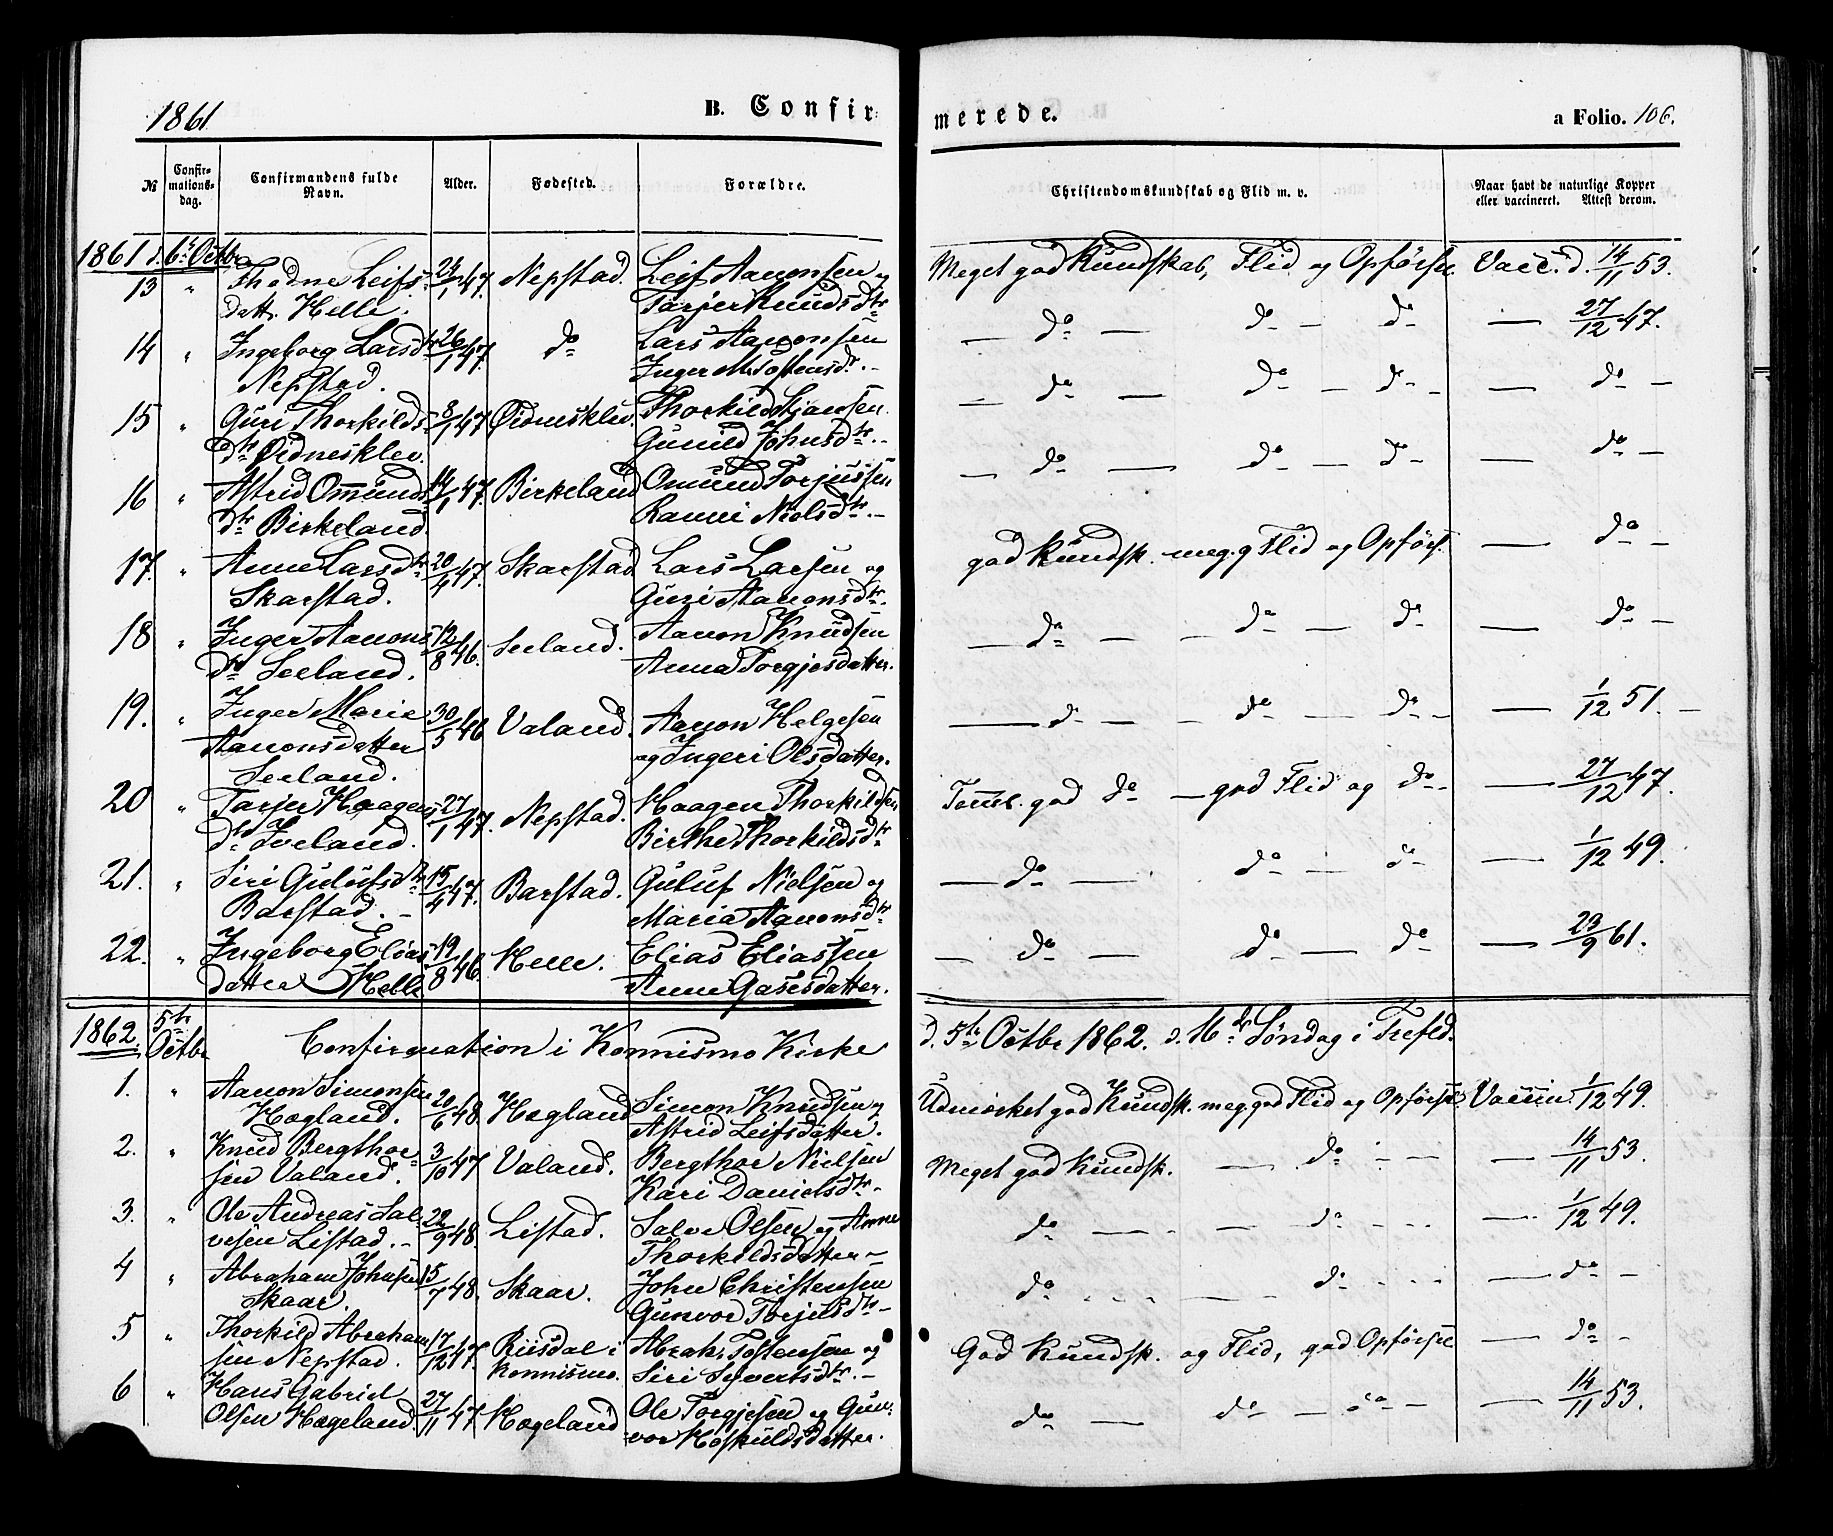 1861
B. Confir
merede.
a Folio. 106.
№
Confir-
mations-
dag.
Confirmandens fulde
Navn.
Alder.
Fødested.
Forældre.
Christendomskundskab og Flid m. v.
Naar havt de naturlige Kopper
eller vaccineret. Attest derom.
1861 d. 6te Octbr
13 " Thodne Leifs- 24/1 47. Nepstad. Leif Aanonsen og Meget god Kundskab, Flid og Opførsel Vacc. d. 14/11 53.
datt. Helle. Tarjer Knudsdtr
14 " Ingeborg Larsdtr 26/1 47. do Lars Aanonsen — do — do — do — 27/12 47.
Nepstad. Inger M. Tostensdr. -
15 " Guri Thorkilds- 8/1 47. Øidnesklev. Thorkild Stiansen. — do — do — do — — do —
dtr Øidnesklev. Gunild Johnsdtr. -
16 " Astrid Omunds- 14/1 47. Birkeland Omund Torjussen — do — do — do — — do —
dtr Birkeland. Ranni Nielsdtr. -
17. " Anne Larsdtr 20/4 47. Skarstad Lars Larsen og god Kundsk. meg. g Flid og Opførs. — do —
Skarstad. Guri Aanonsdtr.
18 " Inger Aanons- 12/8 46. Seeland. Aanon Knudsen — do — do — do — — do —
dtr Seeland. Anna Torgjesdatter.
19. " Inger Marie 30/5 46 Valand. Aanon Helgesen — do — do — do — 1/12 51. —
Aanonsdatter og Ingeri Olsdatter.
Seeland.
20 " Tarjer Haagens- 27/1 47. Nepstad. Haagen Thorkildsen Temml. god do — god Flid og do — 27/12 47.
dr Iveland. Birthe Thorkildsdtr
21. " Siri Gulufsdtr 15/4 47. Barstad. Guluf Nielsen og — do — do — do — 1/12 49.
Barstad. - Maria Aanonsdtr
22. " Ingeborg Elias- 19/8 46. Helle. Elias Eliassen — do — do — do — 23/9 61.
datter Helle Anne Gasesdatter.
1862. 5te
Octbr Confirmation i Konnismo Kirke d. 5te Octbr 1862. d. 16de Søndag i Trefld.
1. " Aanon Simonsen 20/6 48. Hægland Simon Knudsen og Udmærket god Kundsk. meg. god Flid og Opførsel Vaccin. 1/12 49.
Hægland. Astrid Leifsdatter.
2. " Knud Bergthor- 3/10 47 Valand. Bergthor Nielsen Meget god Kundsk. — do — — 14/11 53.
sen Valand. Kari Danielsdtr -
3. " Ole Andreas Sal- 22/9 48. Listad. Salve Olsen og Anne do — — do — — 1/12 49.
vesen Listad. - Thorkildsdatter -
4 " Abraham Johnsen 15/7 48. Skaar. John Christensen do — — do — — do —
Skaar. Gunvor Torjusdtr -
5 " Thorkild Abraham- 17/12 47. Riisdal i Abrah. Tostensen og God Kundsk. og Flid, god Opførsel — do —
sen Nepstad. Konnismo. Siri Syvertsdtr. -
6 " Hans Gabriel 27/11 47. Hægeland Ole Torgjesen og Gun- do — do — do — — 14/11 53.
Olsen Hægeland. vor Høskuldsdatter.